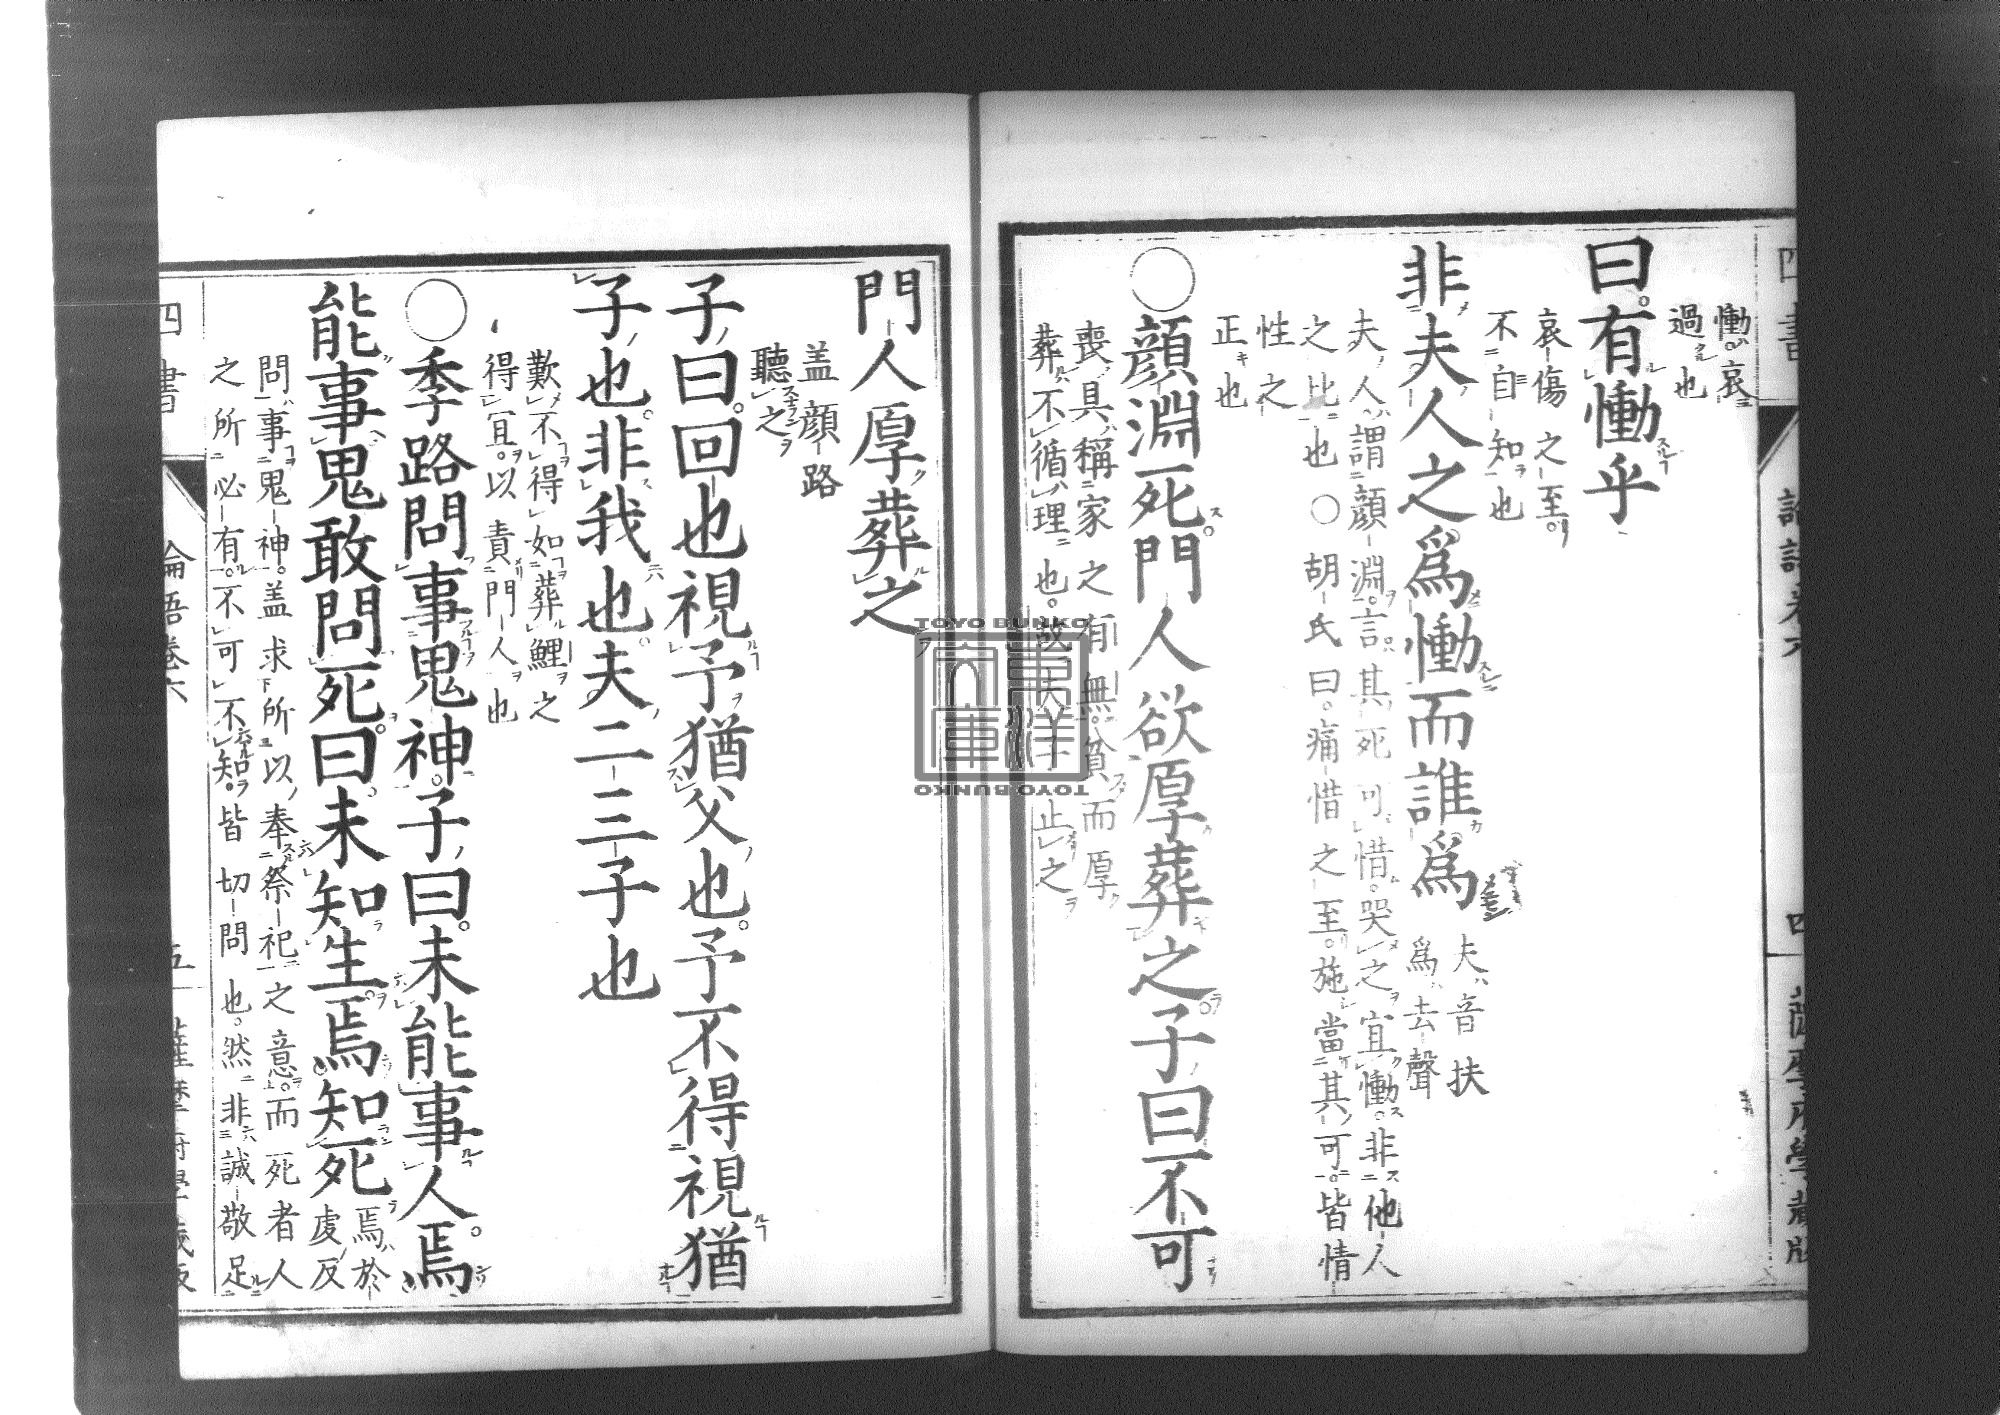 慟哀
過也
曰有慟乎
哀傷之至
不自知也
非夫人之爲慟而誰爲
夫音扶
爲去聲
夫人謂顏淵言其死可惜哭之宜慟非他人
之比也○胡氏曰痛惜之至施當其可皆情
性之
正也
○顏淵死門人欲厚葬之子曰不可
喪具稱家之有無貧而厚
葬不循理也故夫子止之
門人厚葬之
盖顏路
聽之
子曰回也視予猶父也予不得視猶
子也非我也夫二三子也
歎不得如葬鯉之
得宜以責門人也
○季路問事鬼神子曰未能事人焉
能事鬼敢問死曰未知生焉知死
焉於
虔反
問事鬼神盖求所以奉祭祀之意而死者人
之所必有不可不知皆切問也然非誠敬足
四書
論語卷六
五
TOYO BUNKO
東洋文庫
TOYO BUNKO